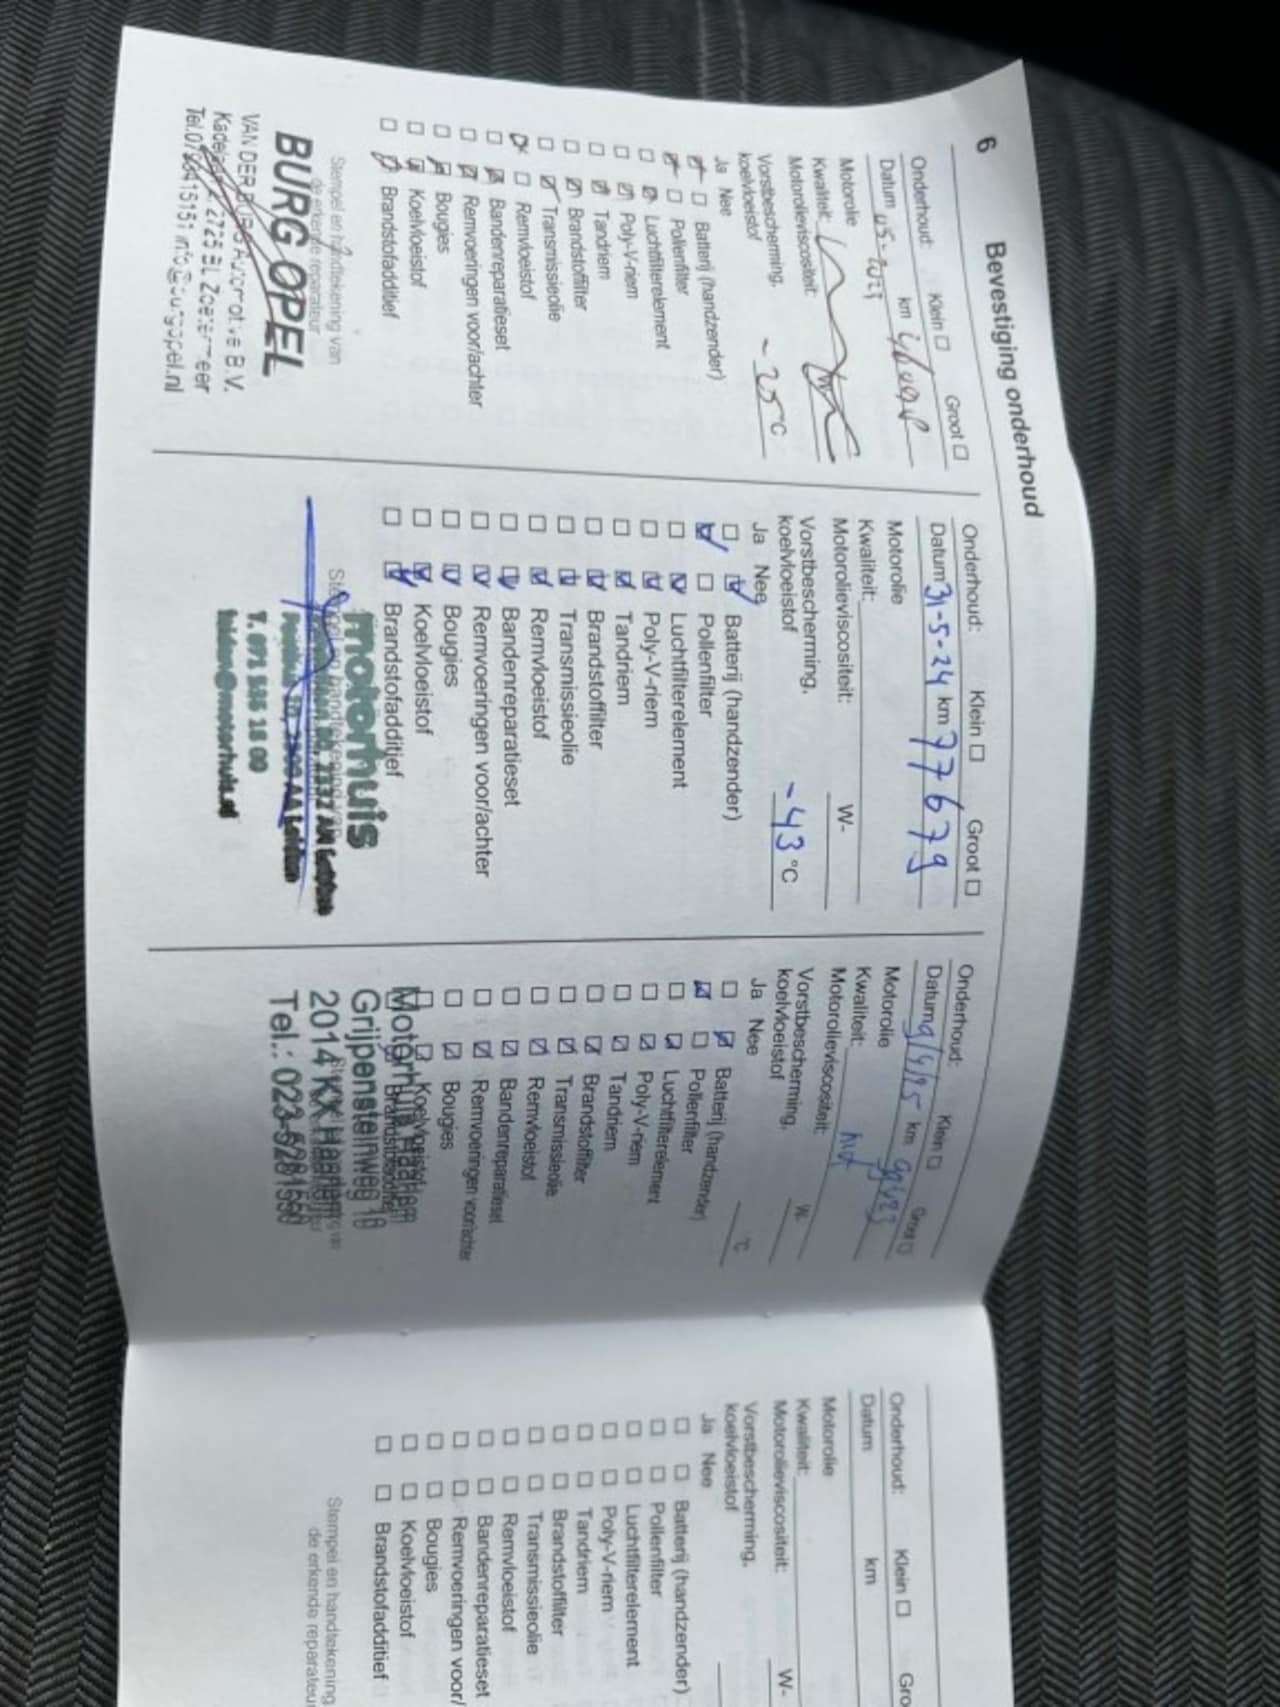 6
Bevestiging onderhoud
Onderhoud: Klein Groot
Datum 05-2023 km
Motorolie
Kwaliteit:
Motorolieviscositeit:
Vorstbescherming,
koelvloeistof -25 °C
Ja Nee
Batterij (handzender)
Pollenfilter
Luchtfilterelement
Poly-V-riem
Tandriem
Brandstoffilter
Transmissieolie
Remvloeistof
Bandenreparatieset
Remvoeringen voor/achter
Bougies
Koelvloeistof
Brandstofadditief
Stempel en handtekening van
de erkende reparateur
BURG OPEL
VAN DER B
2725 BL Zoetermeer
Onderhoud: Klein Groot
Datum 31-5-24 km 77679
Motorolie
Kwaliteit:
Motorolieviscositeit: W-
Vorstbescherming,
koelvloeistof -43 °C
Ja Nee
Batterij (handzender)
Pollenfilter
Luchtfilterelement
Poly-V-riem
Tandriem
Brandstoffilter
Transmissieolie
Remvloeistof
Bandenreparatieset
Remvoeringen voor/achter
Bougies
Koelvloeistof
Brandstofadditief
Stempel en handtekening van
motorhuis
Leiden
T. 071
leiden@motorhuis.nl
Onderhoud: Klein Groot
Datum 9/4/25 km
Motorolie
Kwaliteit:
Motorolieviscositeit: W-
Vorstbescherming,
koelvloeistof °C
Ja Nee
Batterij (handzender)
Pollenfilter
Luchtfilterelement
Poly-V-riem
Tandriem
Brandstoffilter
Transmissieolie
Remvloeistof
Bandenreparatieset
Remvoeringen voor/achter
Bougies
Koelvloeistof
Motorhuis Haarlem
Grijpensteinweg 18
2014 KX Haarlem
Tel.: 023-5281550
Onderhoud: Klein Gro
Datum km
Motorolie
Kwaliteit:
Motorolieviscositeit: W-
Vorstbescherming,
koelvloeistof
Ja Nee
Batterij (handzender)
Pollenfilter
Luchtfilterelement
Poly-V-riem
Tandriem
Brandstoffilter
Transmissieolie
Remvloeistof
Bandenreparatieset
Remvoeringen voor/
Bougies
Koelvloeistof
Brandstofadditief
Stempel en handtekening
de erkende reparateur